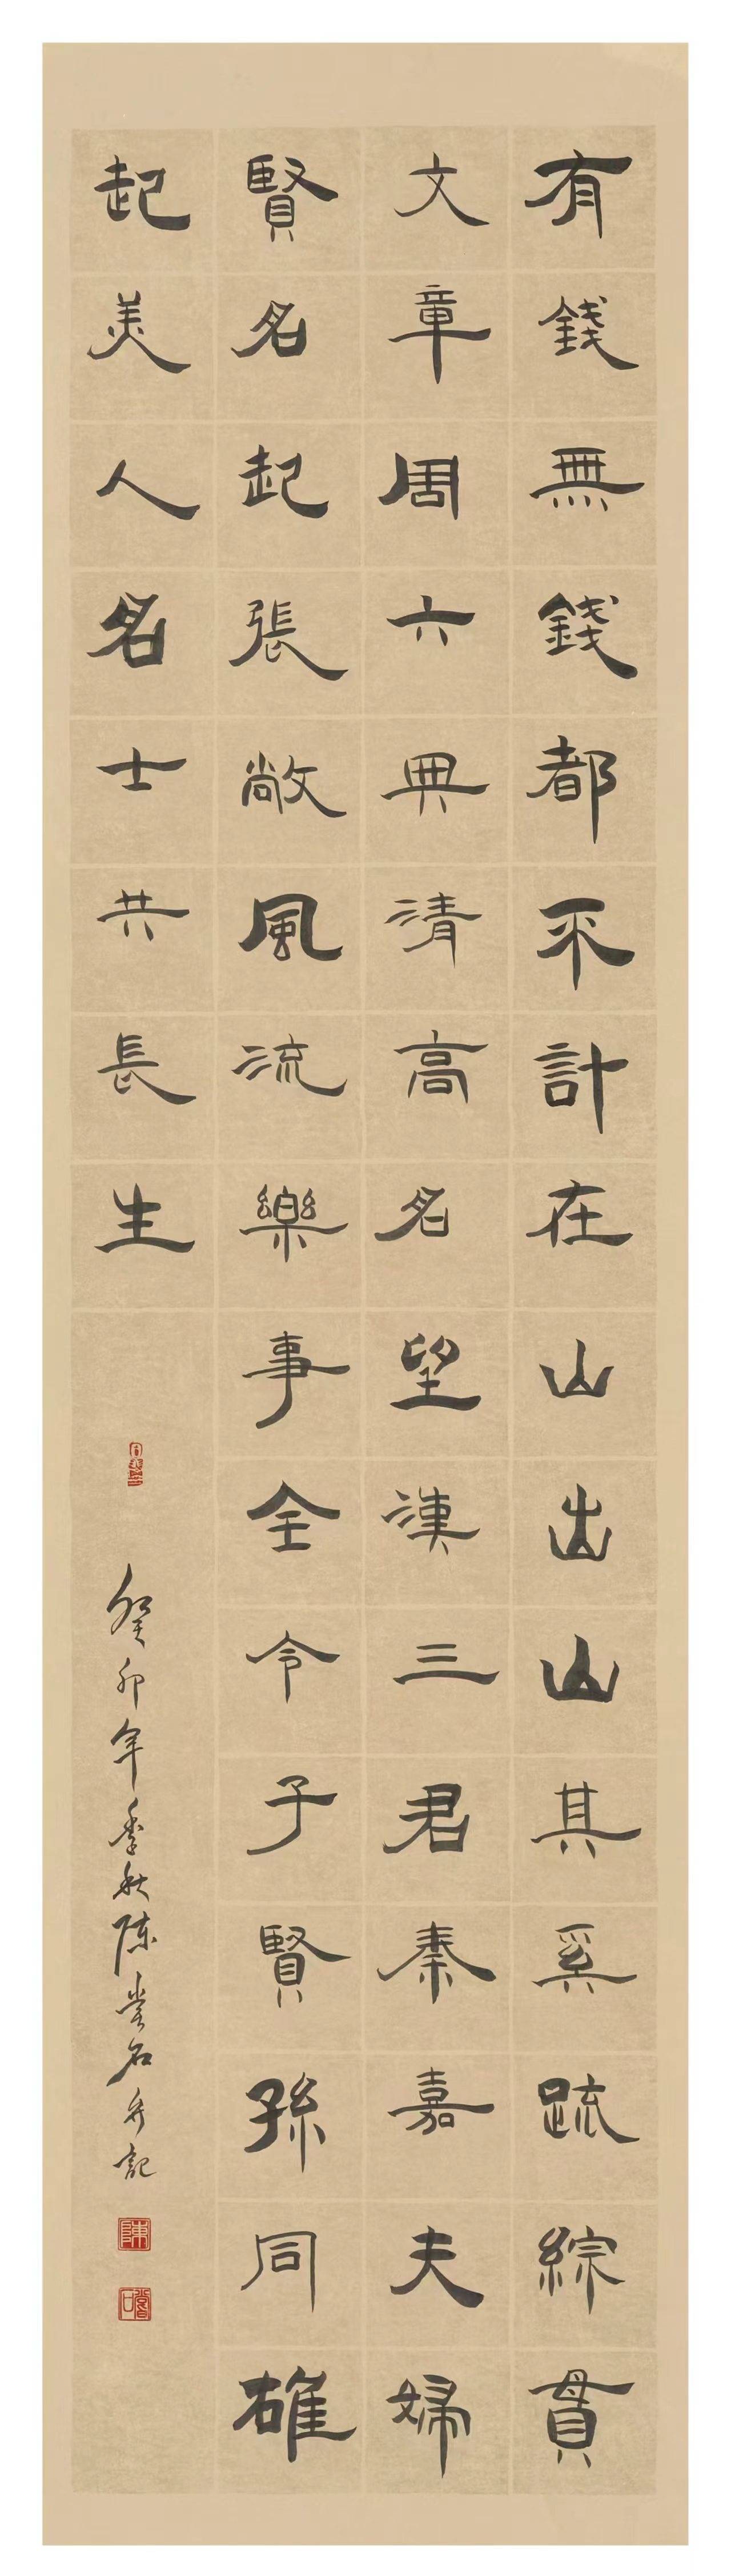 有錢無錢都不計在山出山其奚疏綜貫
文章周六典清高名望漢三君秦嘉夫婦
賢名起張敞風流樂事全令子賢孫同雄
起美人名士共長生
癸卯年季秋陳堂石并記